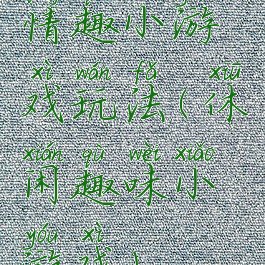 情趣小游
xì wán fǎ xiū
戏玩法(休
xián qù wèi xiǎo
闲趣味小
yóu xì
游戏)